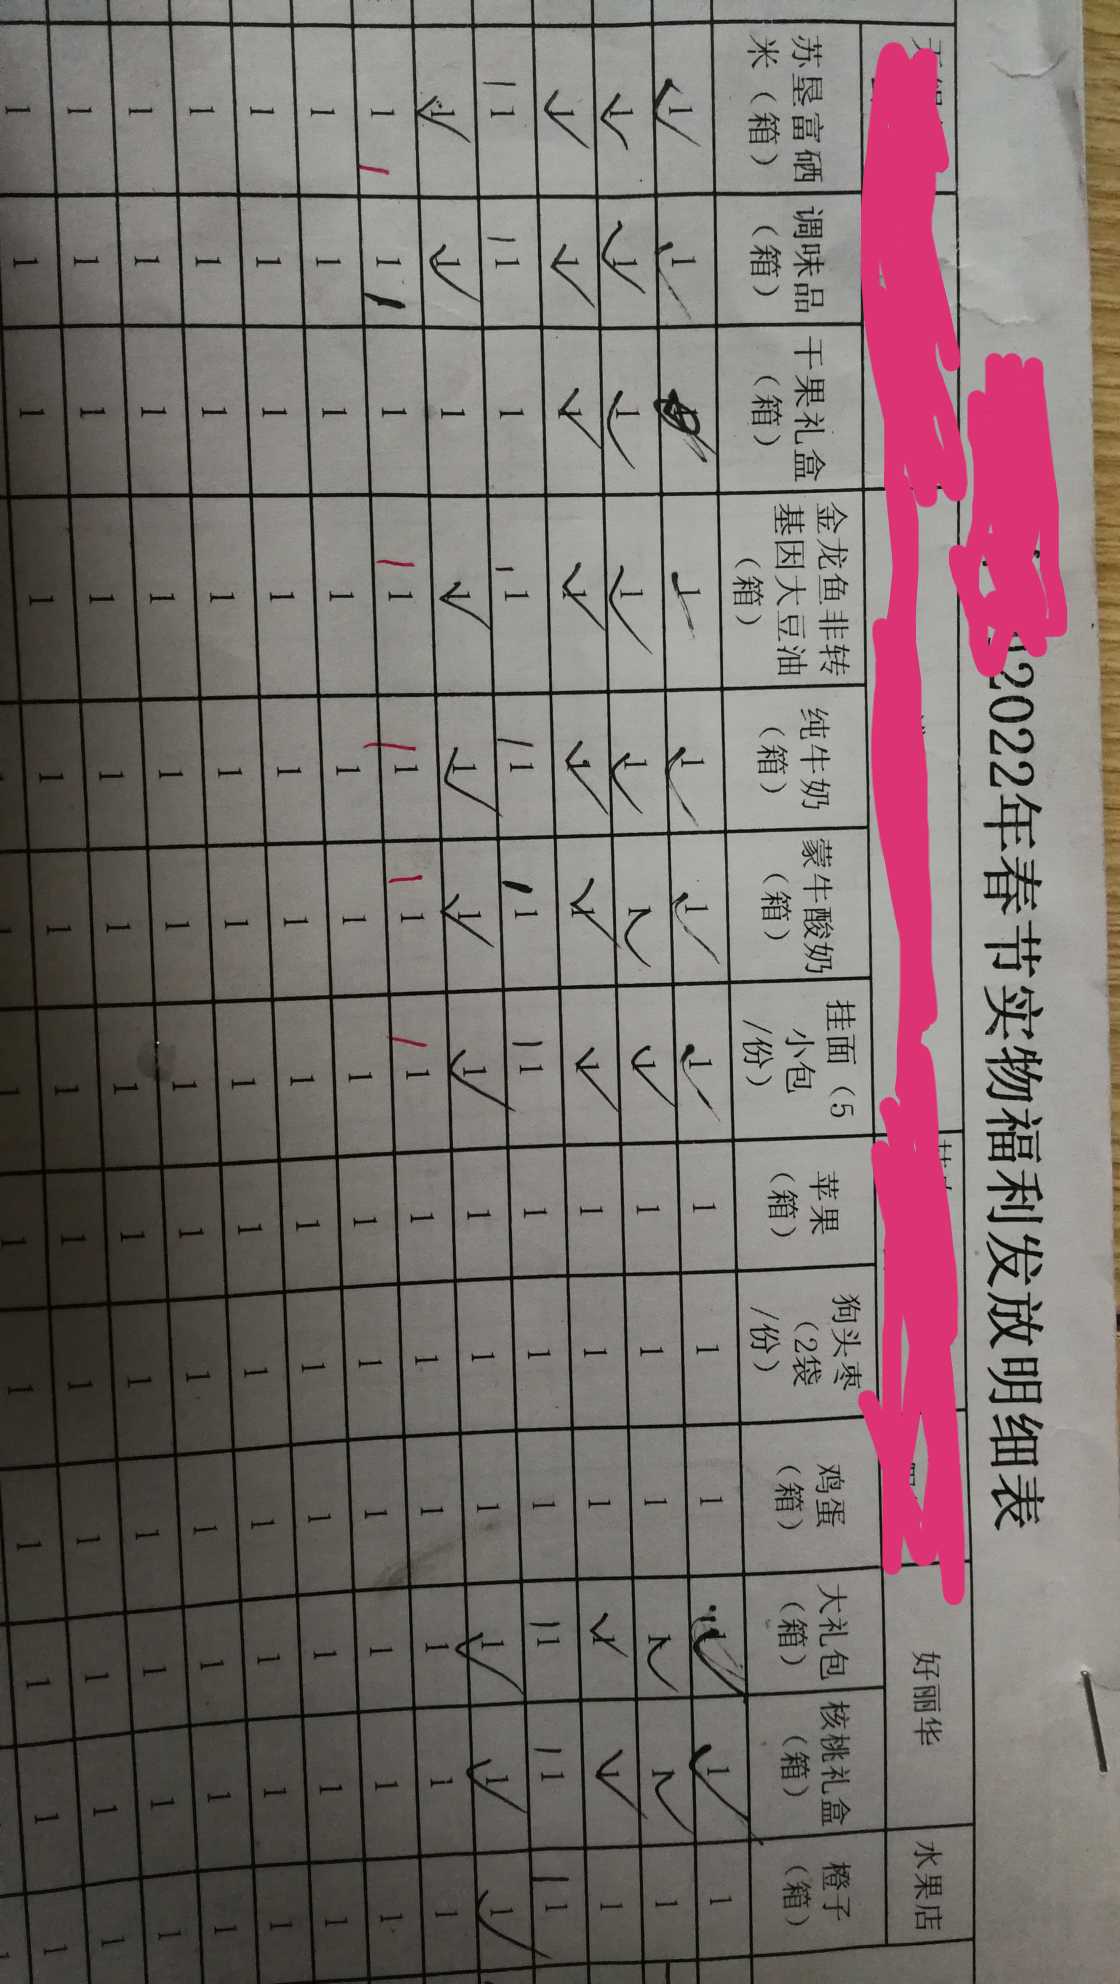 2022年春节实物福利发放明细表
好丽华 水果店
苏垦富硒米（箱） 调味品（箱） 干果礼盒（箱） 金龙鱼非转基因大豆油（箱） 纯牛奶（箱） 蒙牛酸奶（箱） 挂面（5小包/份） 苹果（箱） 狗头枣（2袋/份） 鸡蛋（箱） 大礼包（箱） 核桃礼盒（箱） 橙子（箱）
1 1 1 1 1 1 1 1 1 1 1 1
1 1 1 1 1 1 1 1 1 1 1 1 1
1 1 1 1 1 1 1 1 1 1 1 1 1
1 1 1 1 1 1 1 1 1 1 1 1 1
1 1 1 1 1 1 1 1 1 1 1 1 1
1 1 1 1 1 1 1 1 1 1 1 1 1
1 1 1 1 1 1 1 1 1 1 1 1 1
1 1 1 1 1 1 1 1 1 1 1 1 1
1 1 1 1 1 1 1 1 1 1 1 1 1
1 1 1 1 1 1 1 1 1 1 1 1 1
1 1 1 1 1 1 1 1 1 1 1 1 1
1 1 1 1 1 1 1 1 1 1 1 1 1